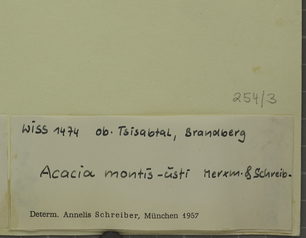 254/3
Wiss 1474 ob. Tsisabtal, Brandberg
Acacia montis-usti Merxm. & Schreib.
Determ. Annelis Schreiber, München 1957